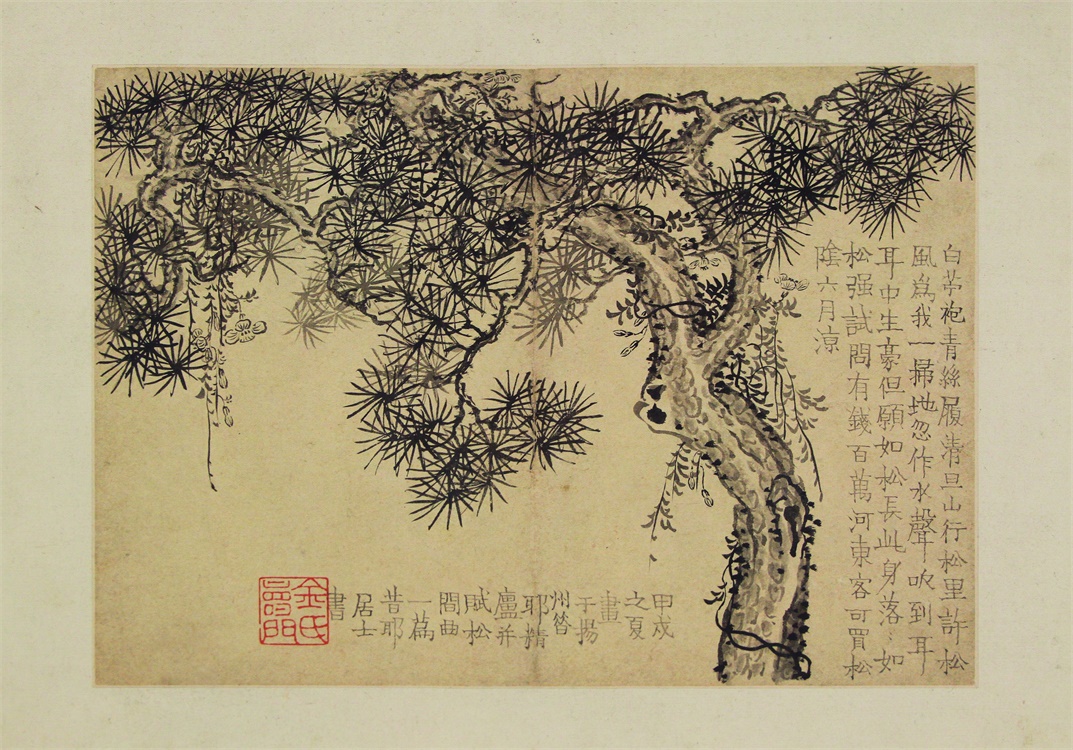 白苧袍青絲履清旦山行松里許松
風爲我一掃地忽作水聲吹到耳
耳中生豪但願如松長此身落〻如
松强試問有錢百萬河東客可買松
陰六月涼
甲戌
之夏
畫
于揚
州笤
耶精
廬并
賦松
間曲
一爲
昔耶
居士
書
金氏
壽門